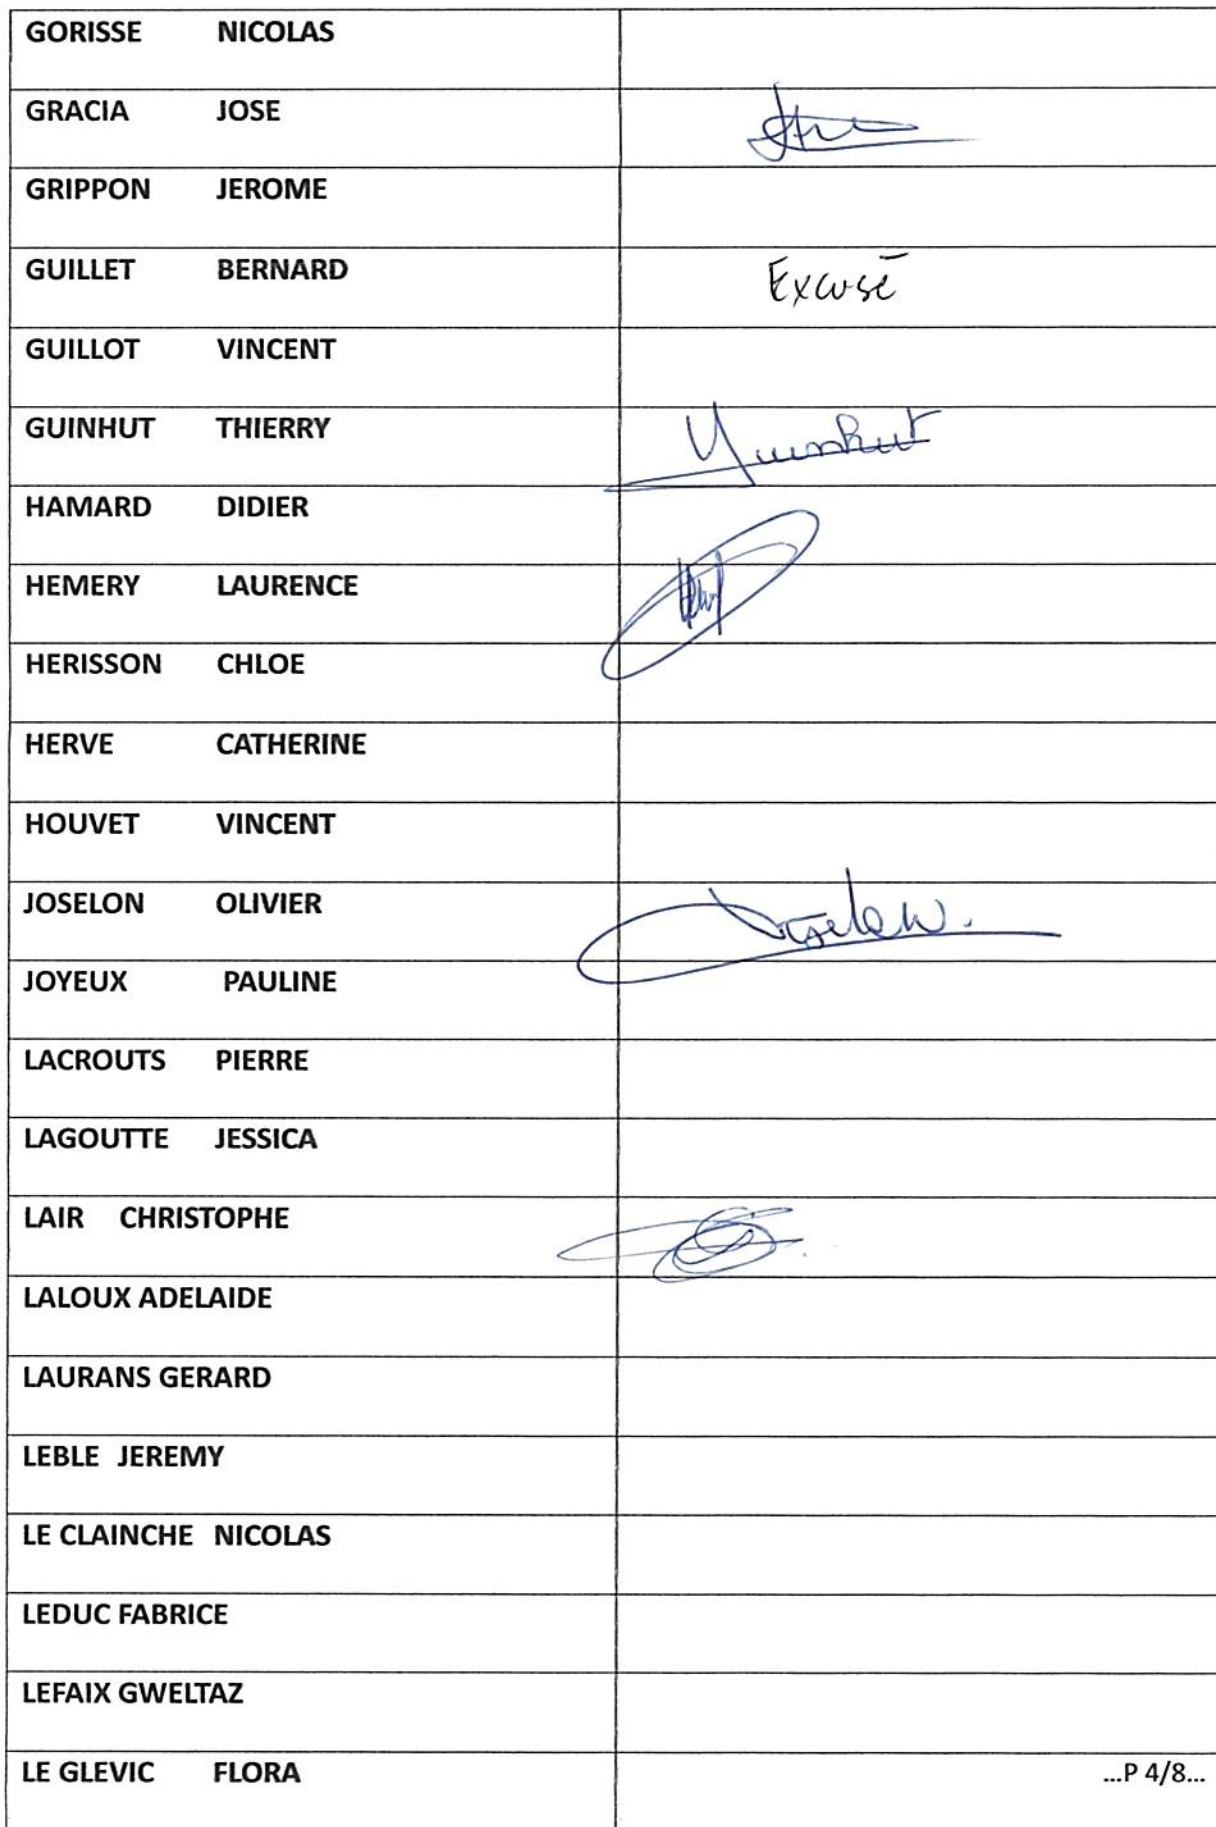 GORISSE NICOLAS
GRACIA JOSE
GRIPPON JEROME
GUILLET BERNARD Excusé
GUILLOT VINCENT
GUINHUT THIERRY Guinhut
HAMARD DIDIER
HEMERY LAURENCE
HERISSON CHLOE
HERVE CATHERINE
HOUVET VINCENT
JOSELON OLIVIER
JOYEUX PAULINE
LACROUTS PIERRE
LAGOUTTE JESSICA
LAIR CHRISTOPHE
LALOUX ADELAIDE
LAURANS GERARD
LEBLE JEREMY
LE CLAINCHE NICOLAS
LEDUC FABRICE
LEFAIX GWELTAZ
LE GLEVIC FLORA ...P 4/8...